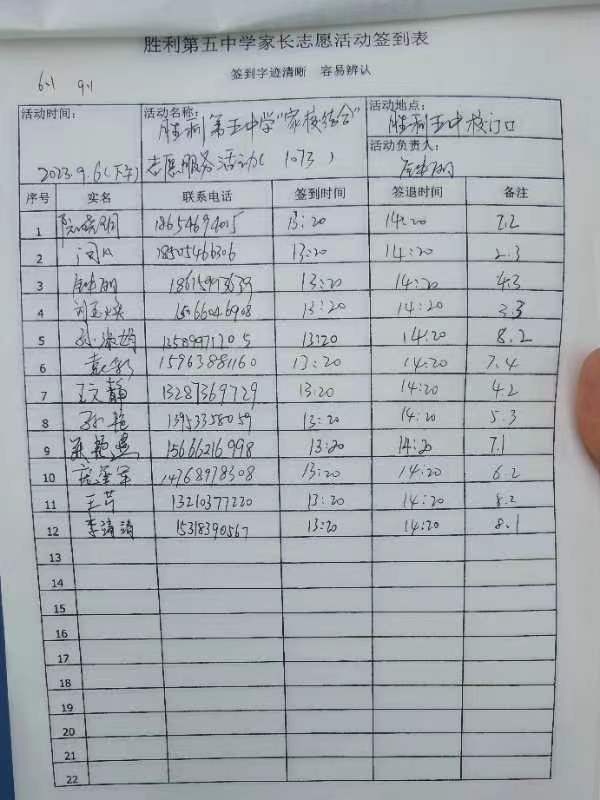 胜利第五中学家长志愿活动签到表
签到字迹清晰 容易辨认
6.1 9.1
活动时间: 活动名称: 活动地点:
胜利第五中学"家校结合" 胜利五中校门口
活动负责人:
2023.9.6(下午) 志愿服务活动( 1073 )
序号 实名 联系电话 签到时间 签退时间 备注
1 13:20 14:20 7.2
2 18505466306 13:20 14:20 2.3
3 13:20 14:20 4.3
4 15066046908 13:20 14:20 3.3
5 13589971705 13:20 14:20 8.2
6 袁彩 15963881160 13:20 14:20 7.4
7 王文静 13287369729 13:20 14:20 4.2
8 孙艳 13953358059 13:20 14:20 5.3
9 15666216998 13:20 14:20 7.1
10 14768978308 13:20 14:20 6.2
11 王芹 13210377220 13:20 14:20 8.2
12 李清清 15318390567 13:20 14:20 8.1
13
14
15
16
17
18
19
20
21
22